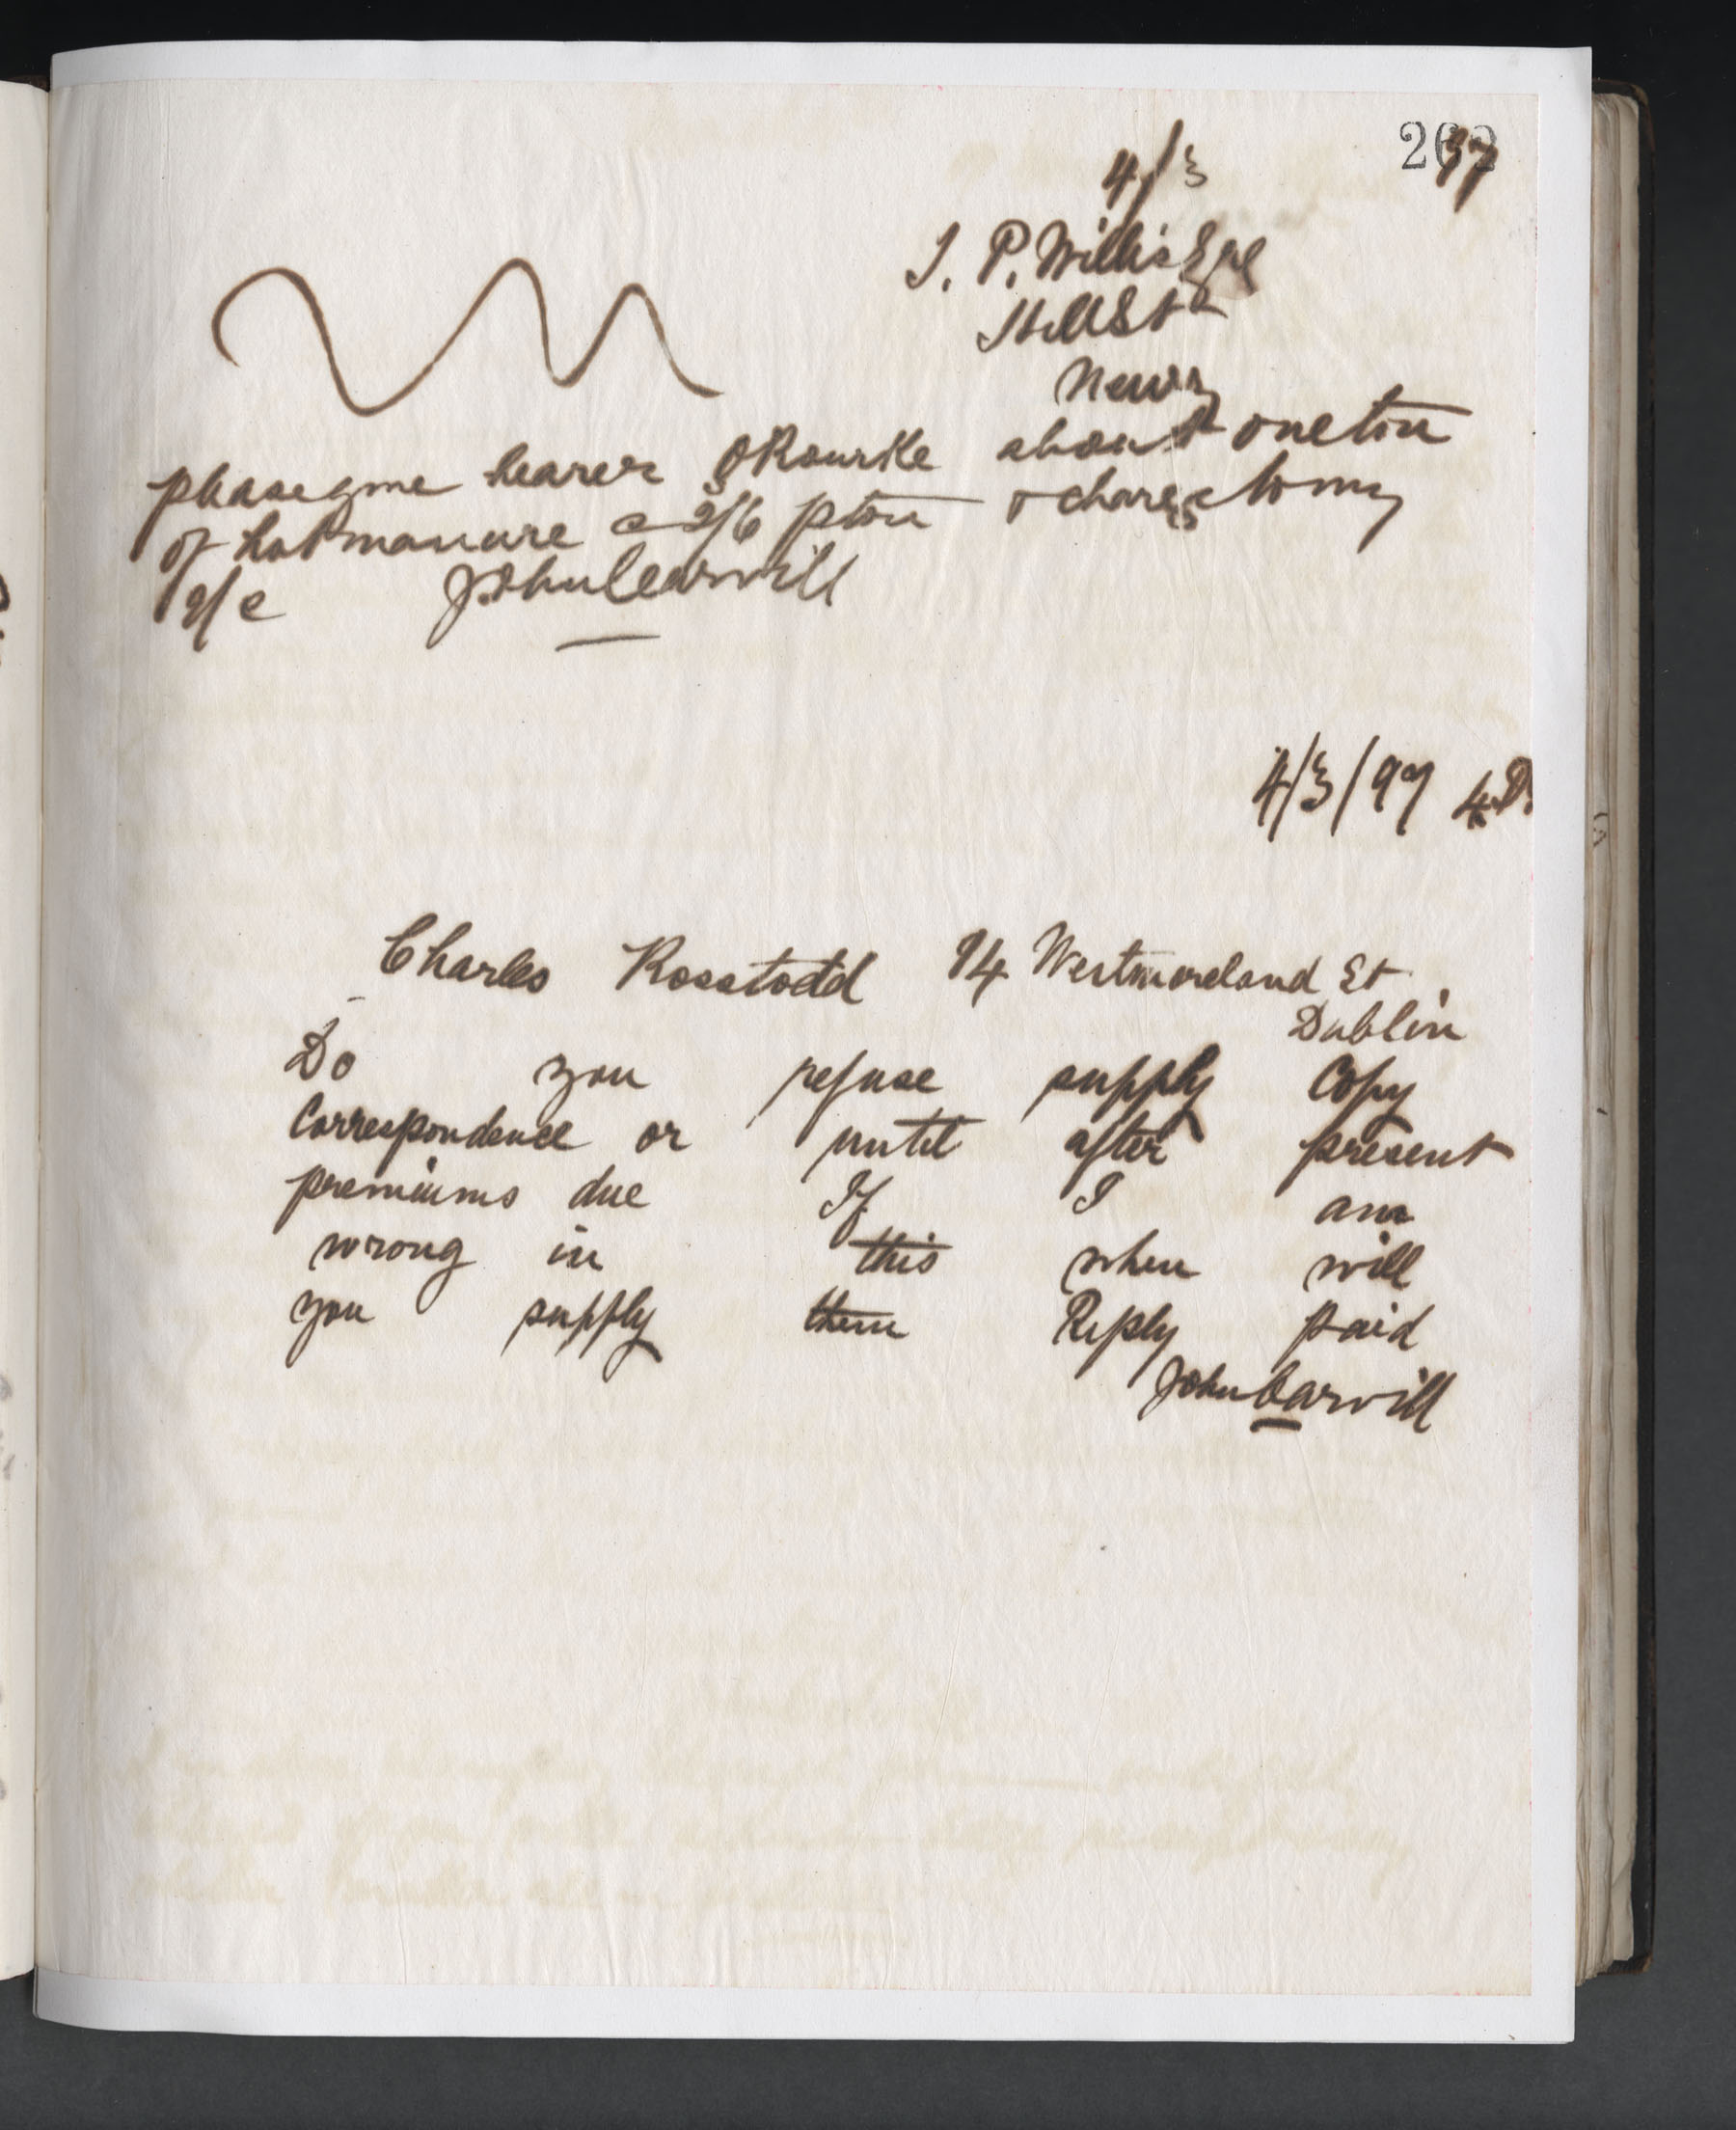 4/3 97
J. P. Willis Esq
Hill St
Newry
please give bearer ORourke about one ton
of hot manure @ 2/6 p ton & charge to my
a/c John Carvill
4/3/97
Charles Rosstodd 14 Westmoreland St.
Dublin
Do you refuse supply Copy
Correspondence or until after present
premiums due If I am
wrong in this when will
you supply them Reply paid
John Carvill